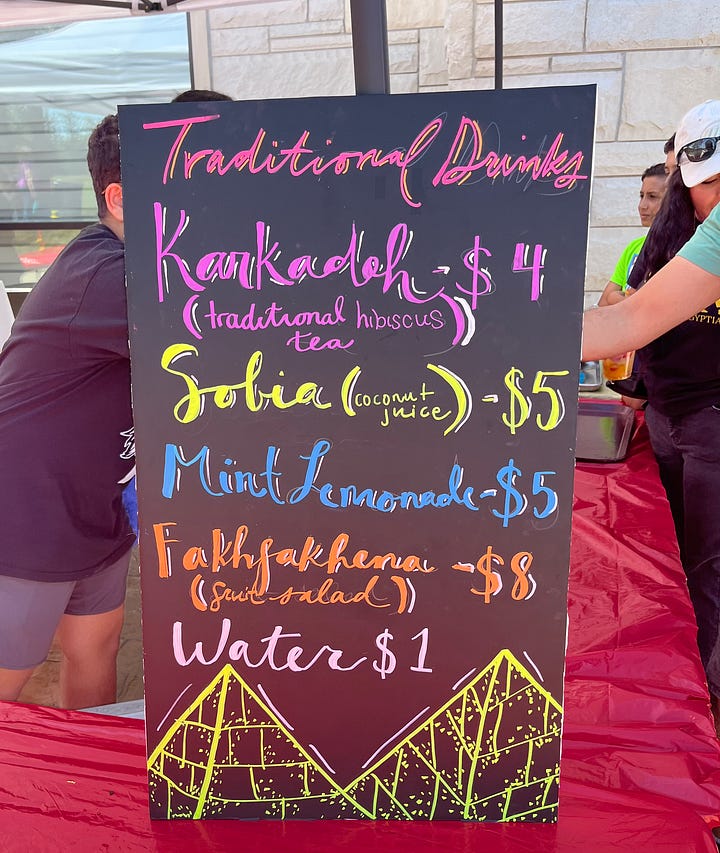 Traditional Drinks
Karkadeh - $4
(traditional hibiscus
tea)
Sobia (coconut
juice) - $5
Mint Lemonade - $5
Fakhfakhena - $8
(fruit salad)
Water $1